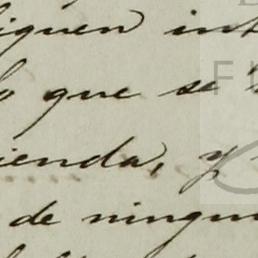 iguen int
lo que se
ienda, y
de ningun